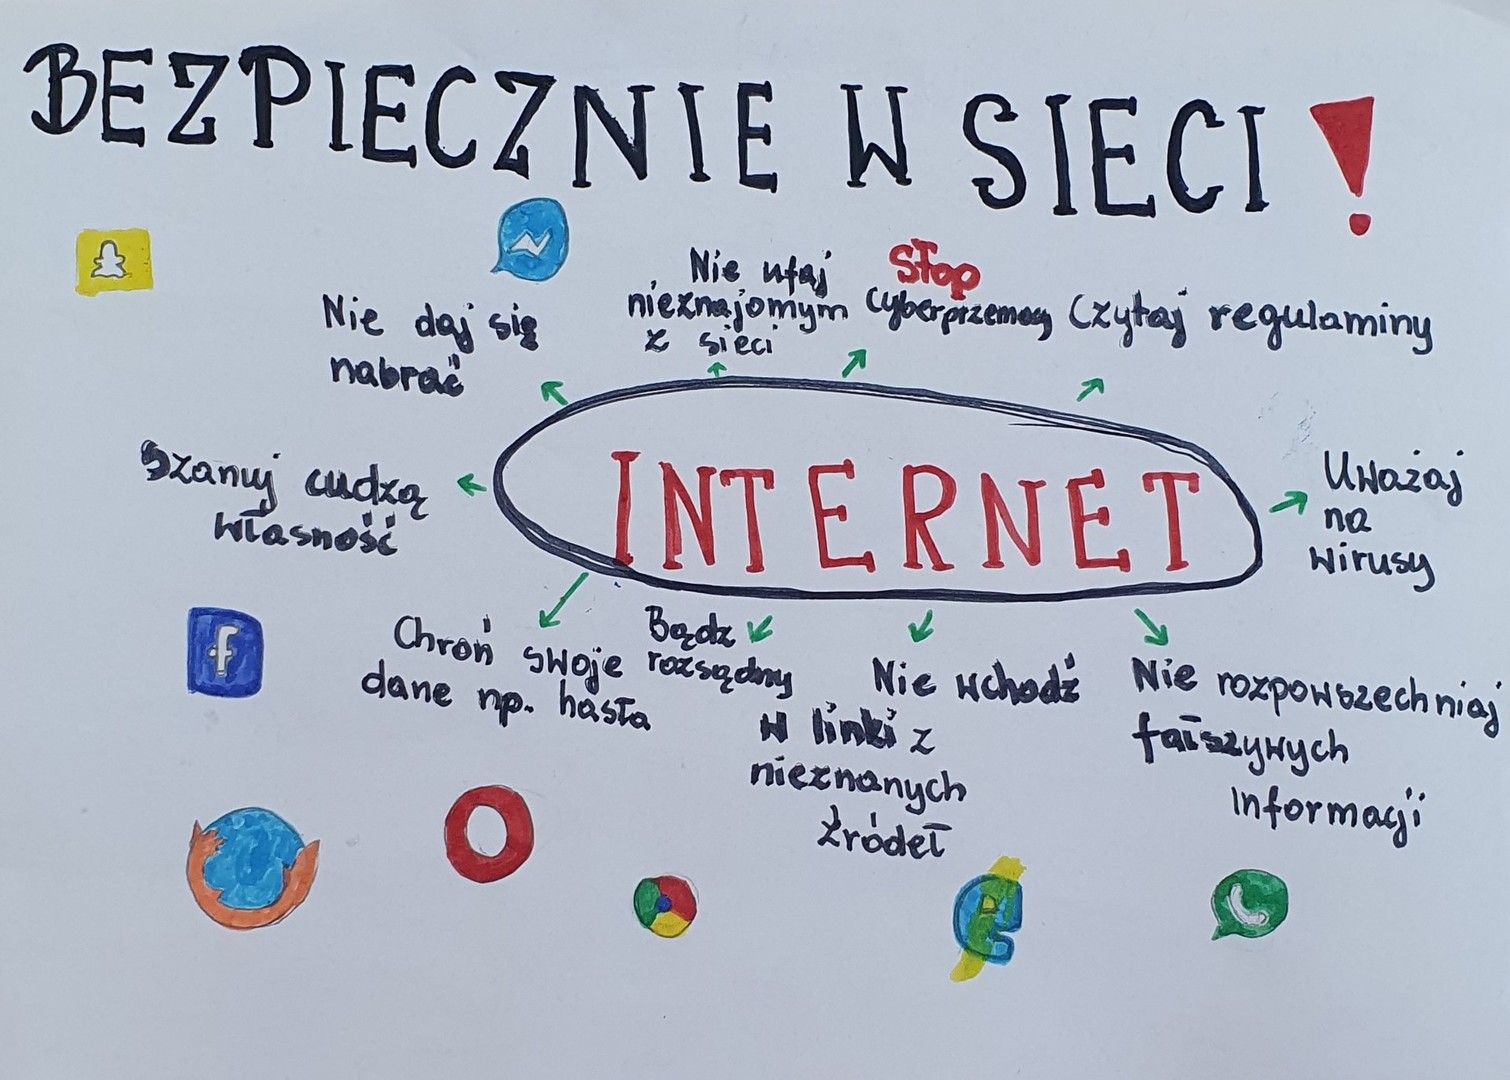 BEZPIECZNIE W SIECI!
Nie daj się
nabrać
Nie ufaj
nieznajomym
z sieci
Stop
cyberprzemocy
Czytaj regulaminy
Szanuj cudzą
własność
INTERNET
Uważaj
na
wirusy
Chroń swoje
dane np. hasła
Bądz
rozsądny
Nie wchodź
w linki z
nieznanych
źródeł
Nie rozpowszechniaj
fałszywych
informacji
f
e